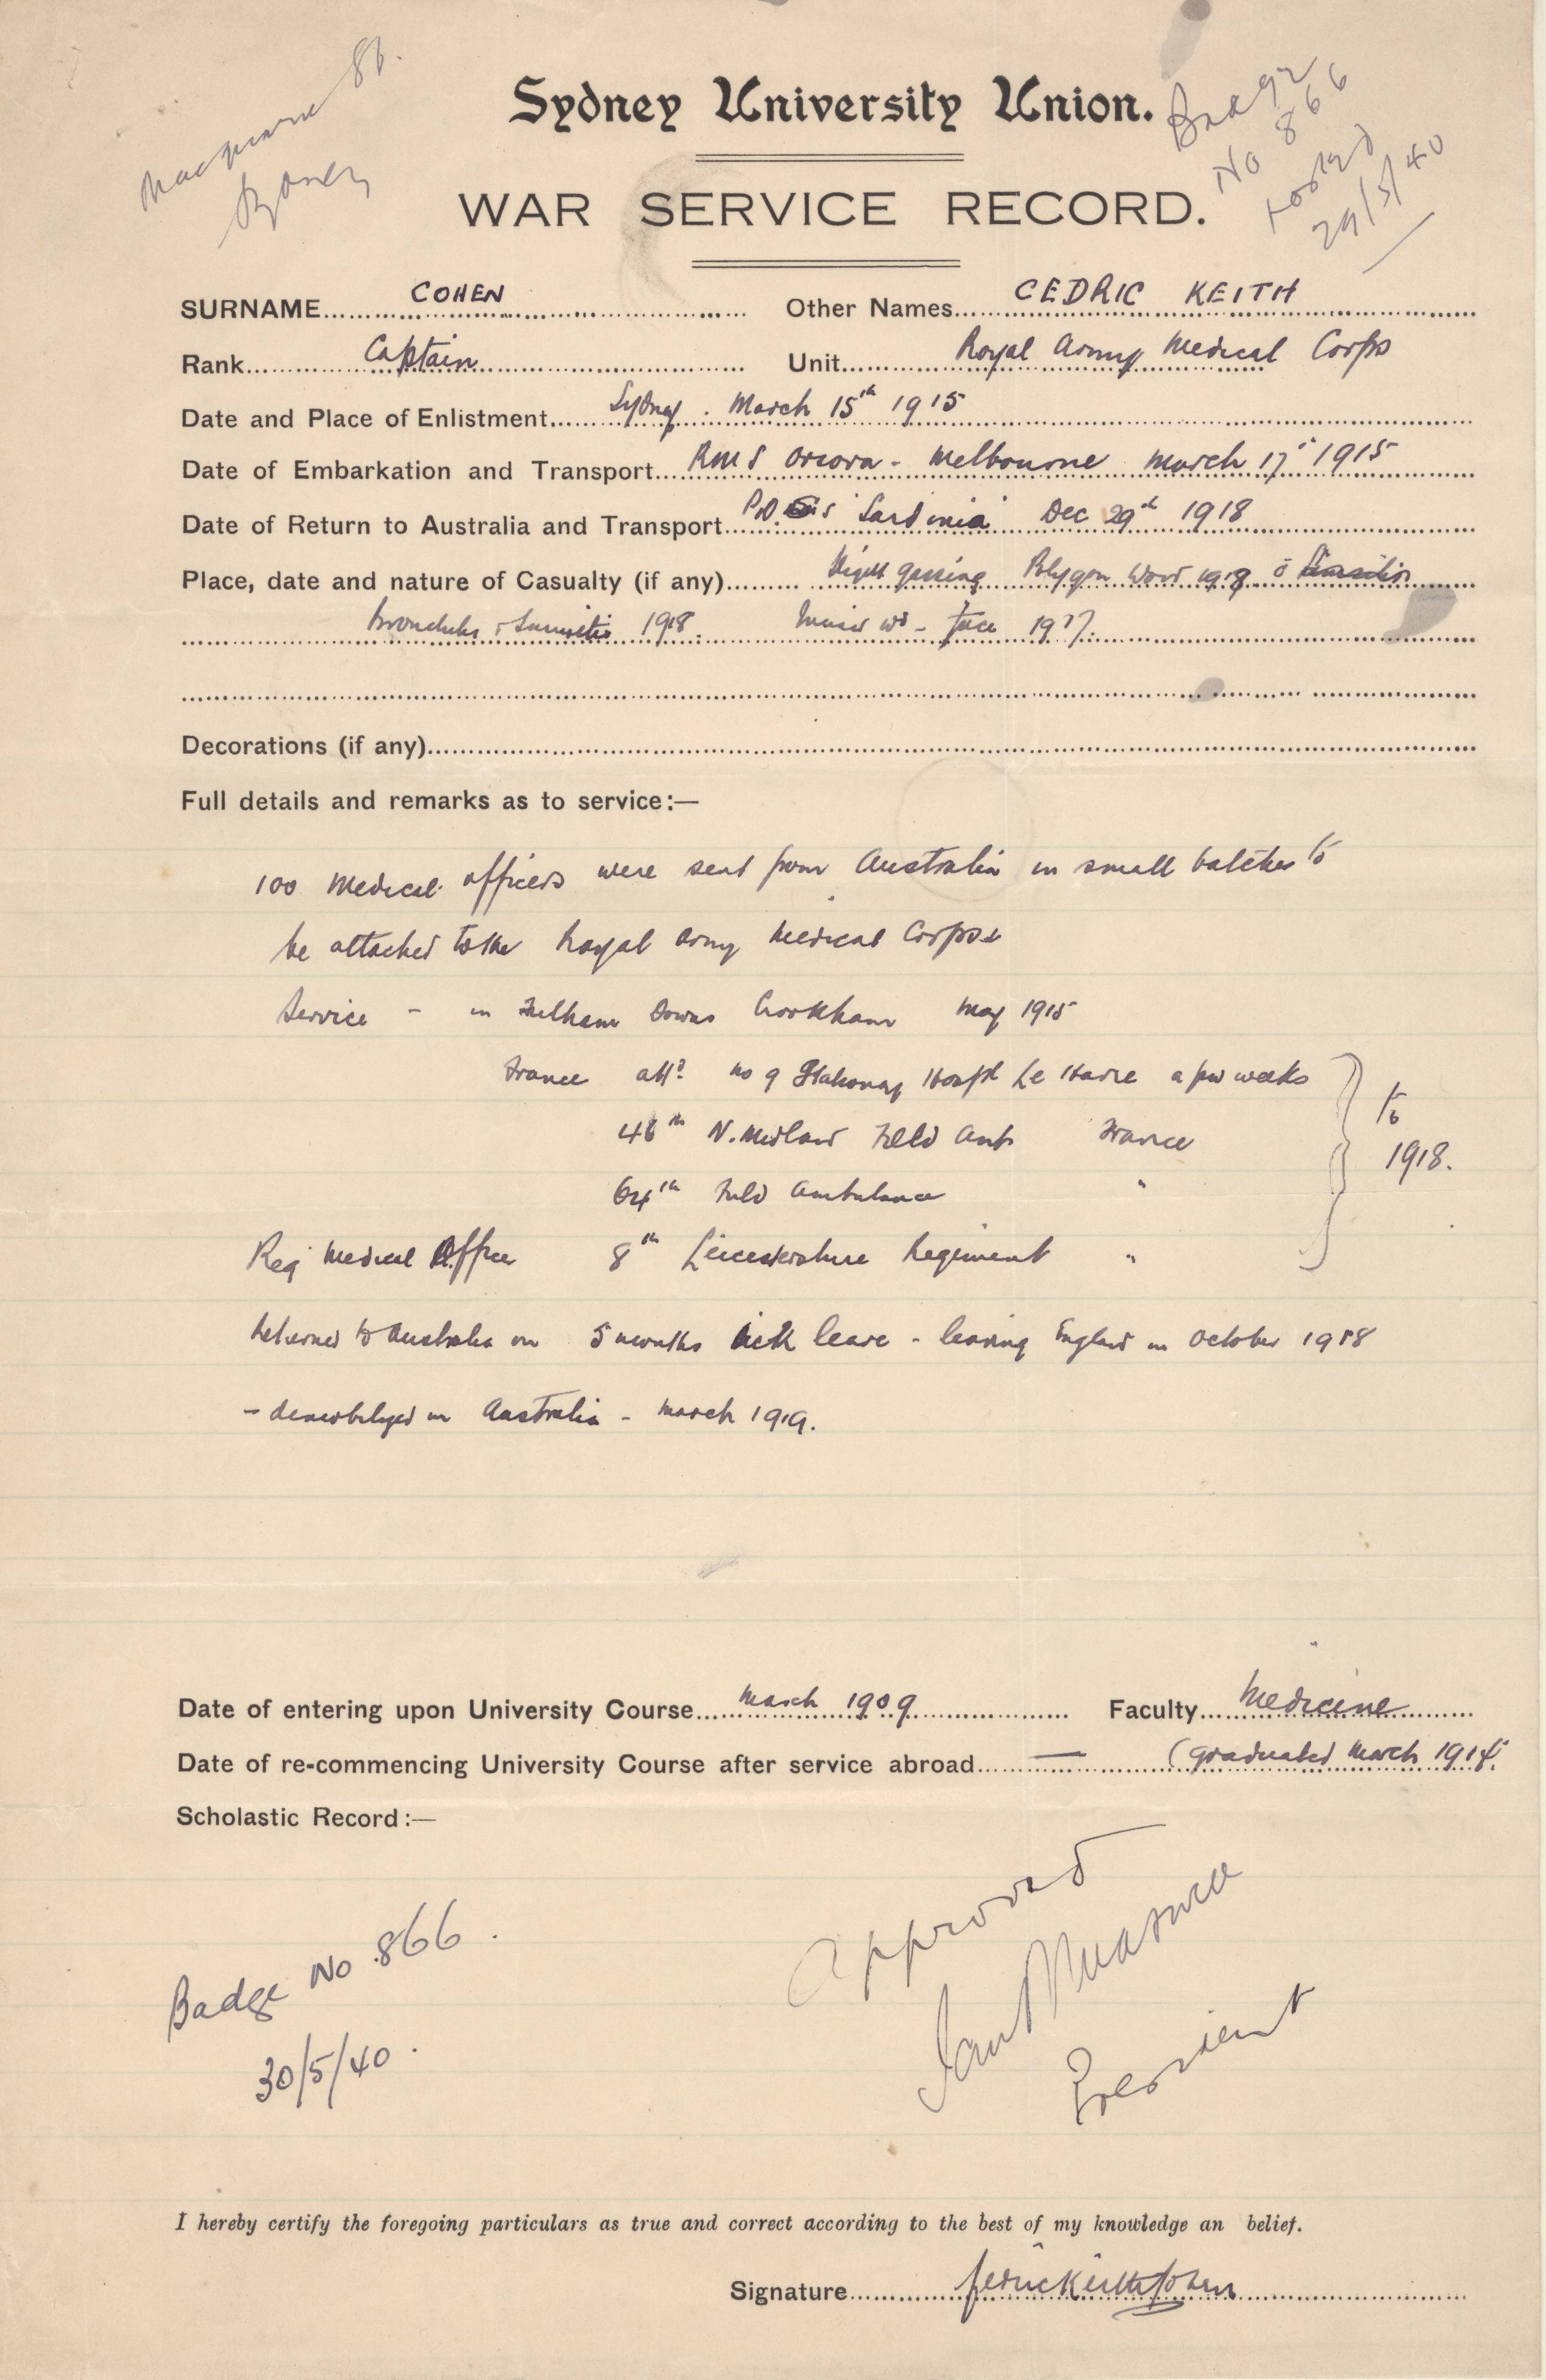 Macquarie St.
Sydney
Badge
No 866
posted
29/5/40
Sydney University Union.
WAR SERVICE RECORD.
SURNAME COHEN Other Names CEDRIC KEITH
Rank Captain Unit Royal Army Medical Corps
Date and Place of Enlistment Sydney. March 15th 1915
Date of Embarkation and Transport RMS Orsova - Melbourne March 17th 1915
Date of Return to Australia and Transport "Sardinia" Dec 29th 1918
Place, date and nature of Casualty (if any) gassing Polygon Wood
bronchitis 1918. Minor wd - face 1917.
Decorations (if any)
Full details and remarks as to service:—
100 Medical officers were sent from Australia in small batches to
be attached to the Royal Army Medical Corps
Service - in Crookham May 1915
France attd no 9 Stationary Hospl Le Havre a few weeks
46th N. Midland Field Amb France
64th Field Ambulance "
to
1918.
Reg Medical Officer 8th Leicestershire Regiment "
Returned to Australia on 5 months sick leave - leaving England in October 1918
- demobilized in Australia - March 1919.
Date of entering upon University Course March 1909 Faculty Medicine
Date of re-commencing University Course after service abroad — (graduated March 1914.
Scholastic Record:—
Approved
President
Badge No 866.
30/5/40.
I hereby certify the foregoing particulars as true and correct according to the best of my knowledge an belief.
Signature Cedric Keith Cohen